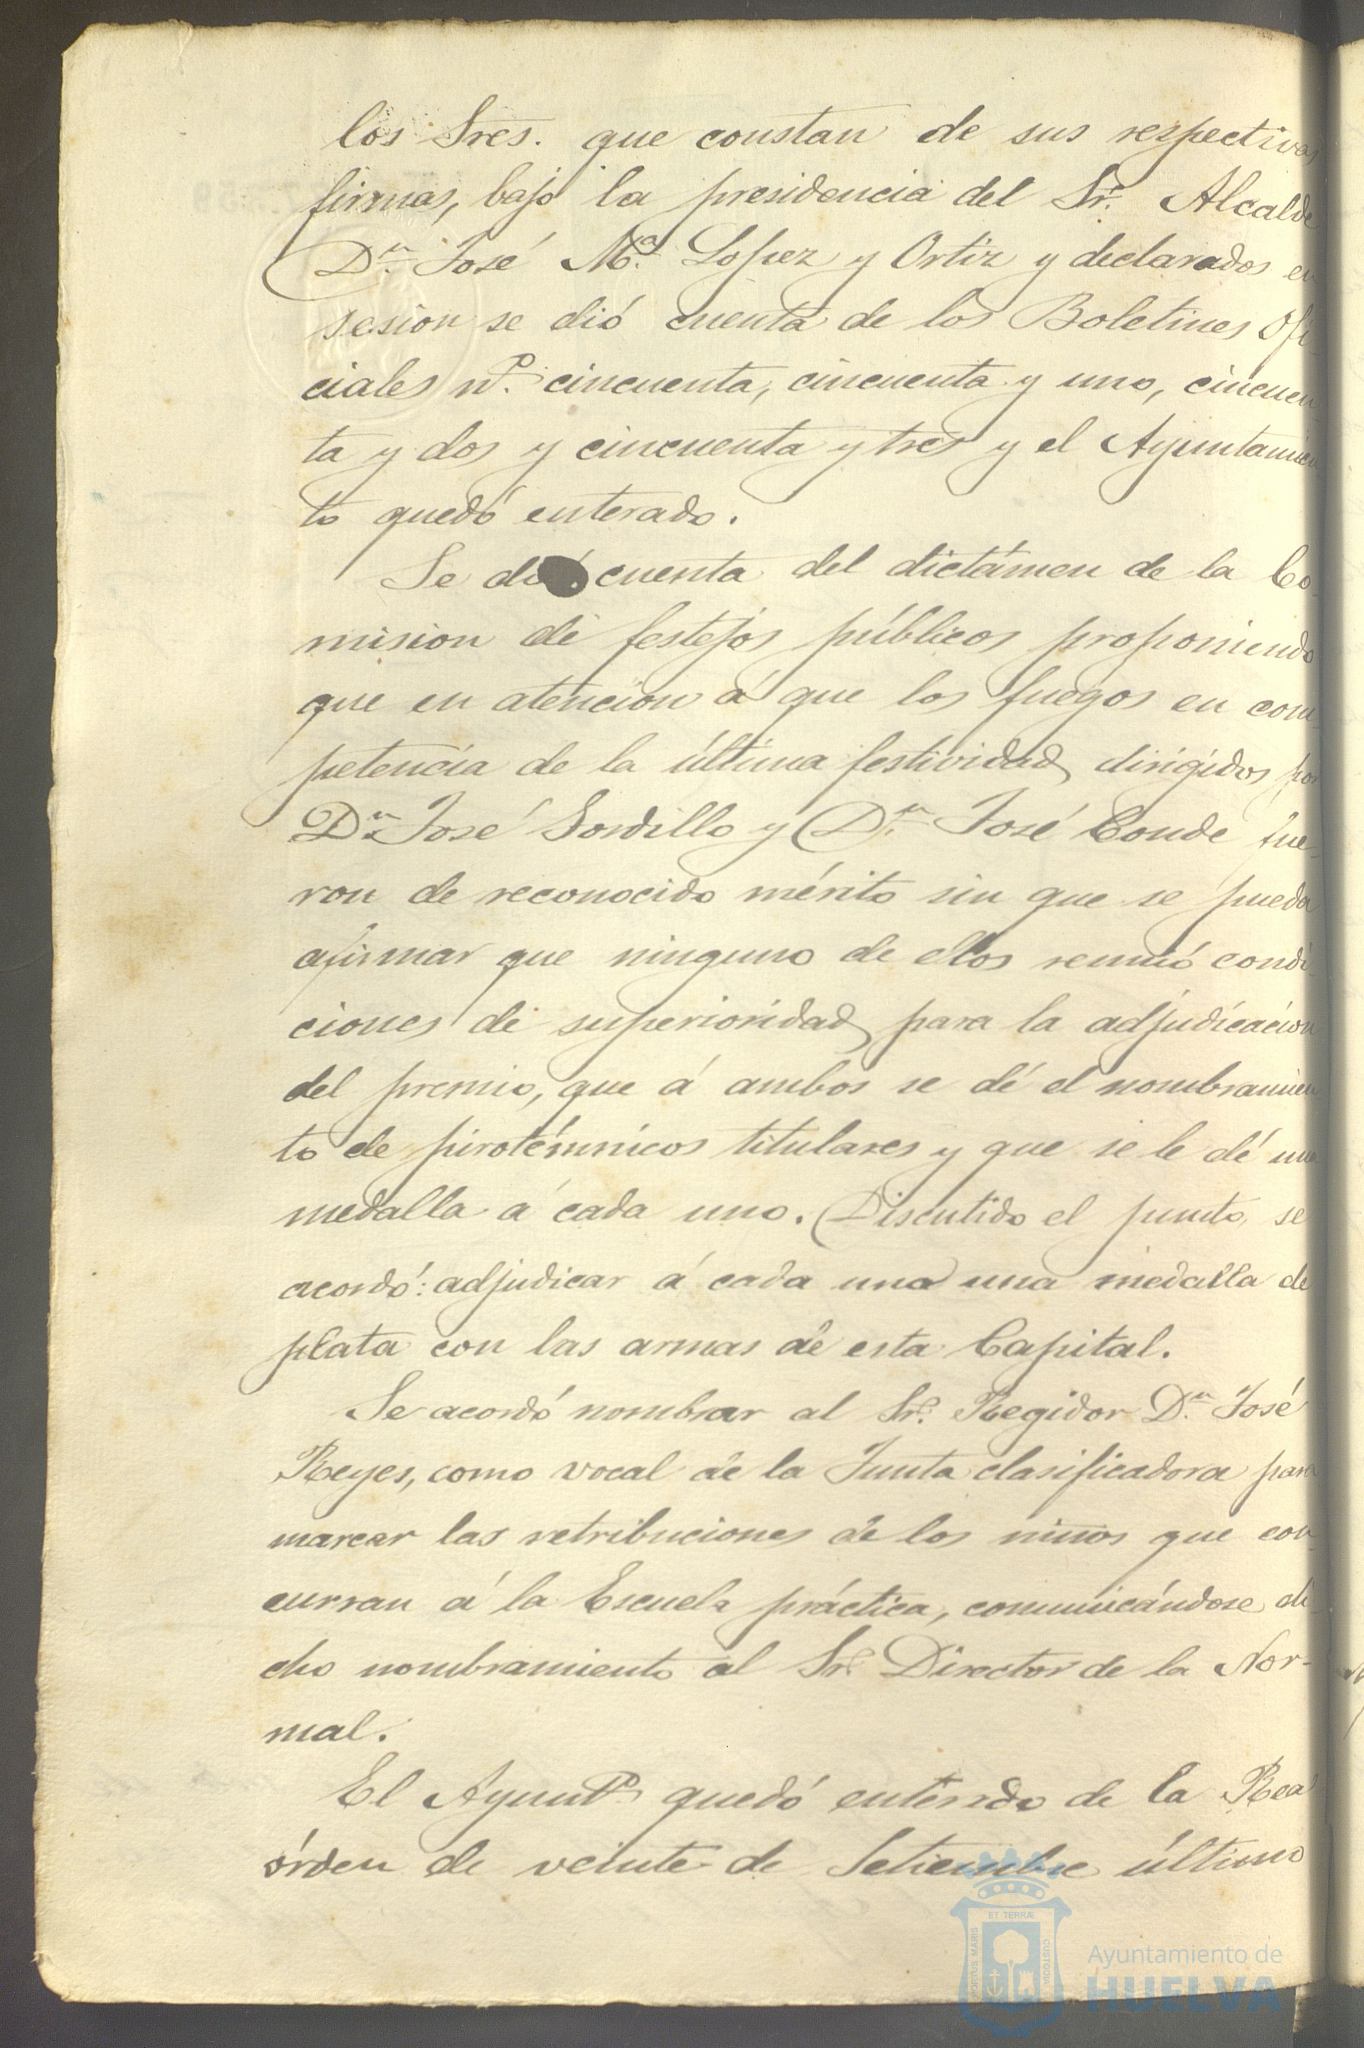 los Sres. que constan de sus respectivas
firmas, bajo la presidencia del Sr. Alcalde
Dn. José Ma. Lopez y Ortiz y declarados en
sesion se dió cuenta de los Boletines Ofi-
ciales no. cincuenta, cincuenta y uno, cincuen
ta y dos y cincuenta y tres y el Ayuntamien
to quedó enterado.
Se dió cuenta del dictámen de la Co-
mision de festejos públicos proponiendo
que en atencion á que los fuegos en com-
petencia de la última festividad, dirigidos por
Dn. José Sordillo y Dn. José Conde fue-
ron de reconocido mérito sin que se pueda
afirmar que ninguno de ellos reunió condi
ciones de superioridad para la adjudicacion
del premio, que á ambos se dé el nombramien
to de pirotémnicos titulares y que se le dé una
medalla á cada uno. Discutido el punto, se
acordó: adjudicar á cada uno una medalla de
plata con las armas de esta Capital.
Se acordó nombrar al Sr. Regidor Dn. José
Reyes, como vocal de la Junta clasificadora para
marcar las retribuciones de los niños que con-
curran á la Escuela práctica, comunicándose di-
cho nombramiento al Sr. Director de la Nor-
mal.
El Ayunto. quedó enterado de la Real
órden de veinte de Setiembre último
ET TERRÆ
PORTUS MARIS
CUSTODIA
Ayuntamiento de
HUELVA